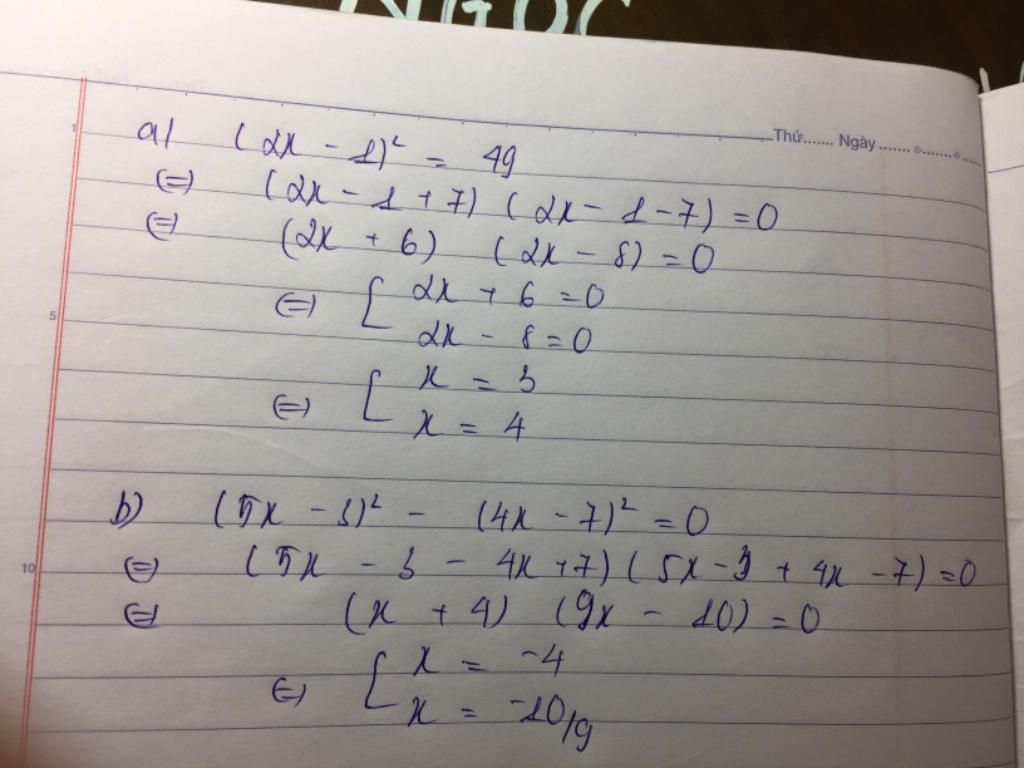 NGOC
Thứ....... Ngày
1
a) (2x - 1)² = 49
(=) (2x - 1 + 7) (2x - 1 - 7) = 0
(=) (2x + 6) (2x - 8) = 0
5
(=) [ 2x + 6 = 0
2x - 8 = 0
(=) [ x = 3
x = 4
b) (5x - 3)² - (4x - 7)² = 0
10
(=) (5x - 3 - 4x + 7) (5x - 3 + 4x - 7) = 0
(=) (x + 4) (9x - 10) = 0
(=) [ x = -4
x = -10/9